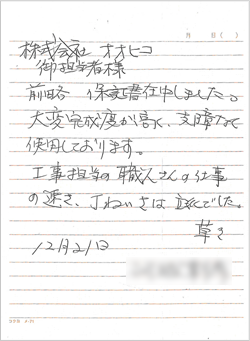 月 日( )
株式会社 オオヒコ
御担当者様
前略 保証書在中しました。
大変完成度が高く、支障なく
使用しております。
工事担当の職人さんの仕事
の速さ、丁ねいさは立派でした。
草々
12月21日